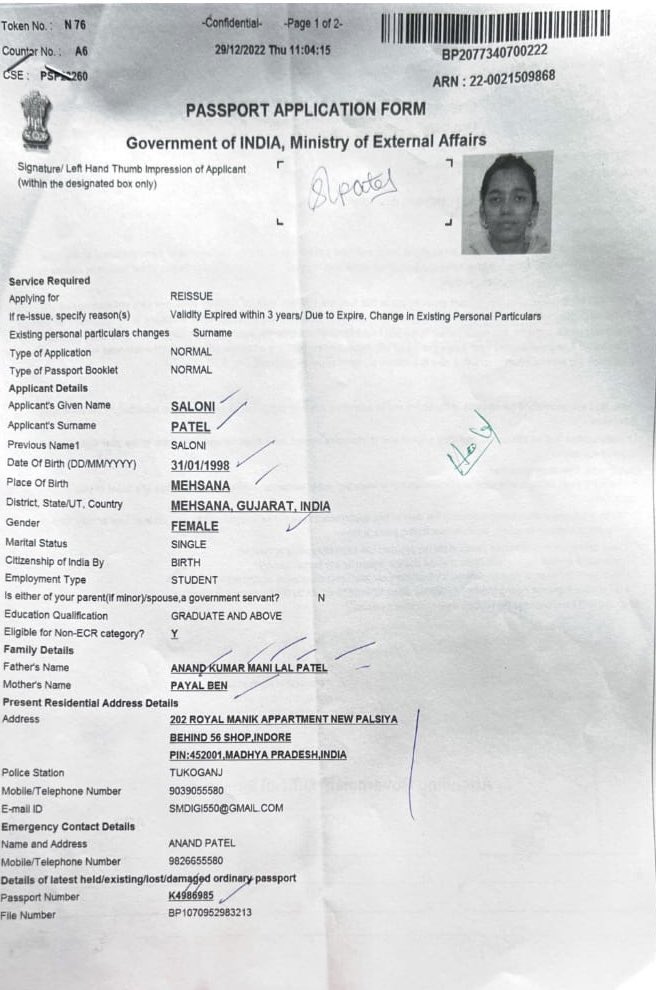 Token No. : N 76 -Confidential- -Page 1 of 2-
Counter No. : A6 29/12/2022 Thu 11:04:15 BP2077340700222
CSE : ARN : 22-0021509868
PASSPORT APPLICATION FORM
Government of INDIA, Ministry of External Affairs
Signature/ Left Hand Thumb Impression of Applicant
(within the designated box only)
Service Required
Applying for REISSUE
If re-issue, specify reason(s) Validity Expired within 3 years/ Due to Expire, Change in Existing Personal Particulars
Existing personal particulars changes Surname
Type of Application NORMAL
Type of Passport Booklet NORMAL
Applicant Details
Applicant's Given Name SALONI
Applicant's Surname PATEL
Previous Name1 SALONI
Date Of Birth (DD/MM/YYYY) 31/01/1998
Place Of Birth MEHSANA
District, State/UT, Country MEHSANA, GUJARAT, INDIA
Gender FEMALE
Marital Status SINGLE
Citizenship of India By BIRTH
Employment Type STUDENT
Is either of your parent(if minor)/spouse,a government servant? N
Education Qualification GRADUATE AND ABOVE
Eligible for Non-ECR category? Y
Family Details
Father's Name ANAND KUMAR MANI LAL PATEL
Mother's Name PAYAL BEN
Present Residential Address Details
Address 202 ROYAL MANIK APPARTMENT NEW PALSIYA
BEHIND 56 SHOP,INDORE
PIN:452001,MADHYA PRADESH,INDIA
Police Station TUKOGANJ
Mobile/Telephone Number 9039055580
E-mail ID SMDIGI550@GMAIL.COM
Emergency Contact Details
Name and Address ANAND PATEL
Mobile/Telephone Number 9826655580
Details of latest held/existing/lost/damaged ordinary passport
Passport Number K4986985
File Number BP1070952983213